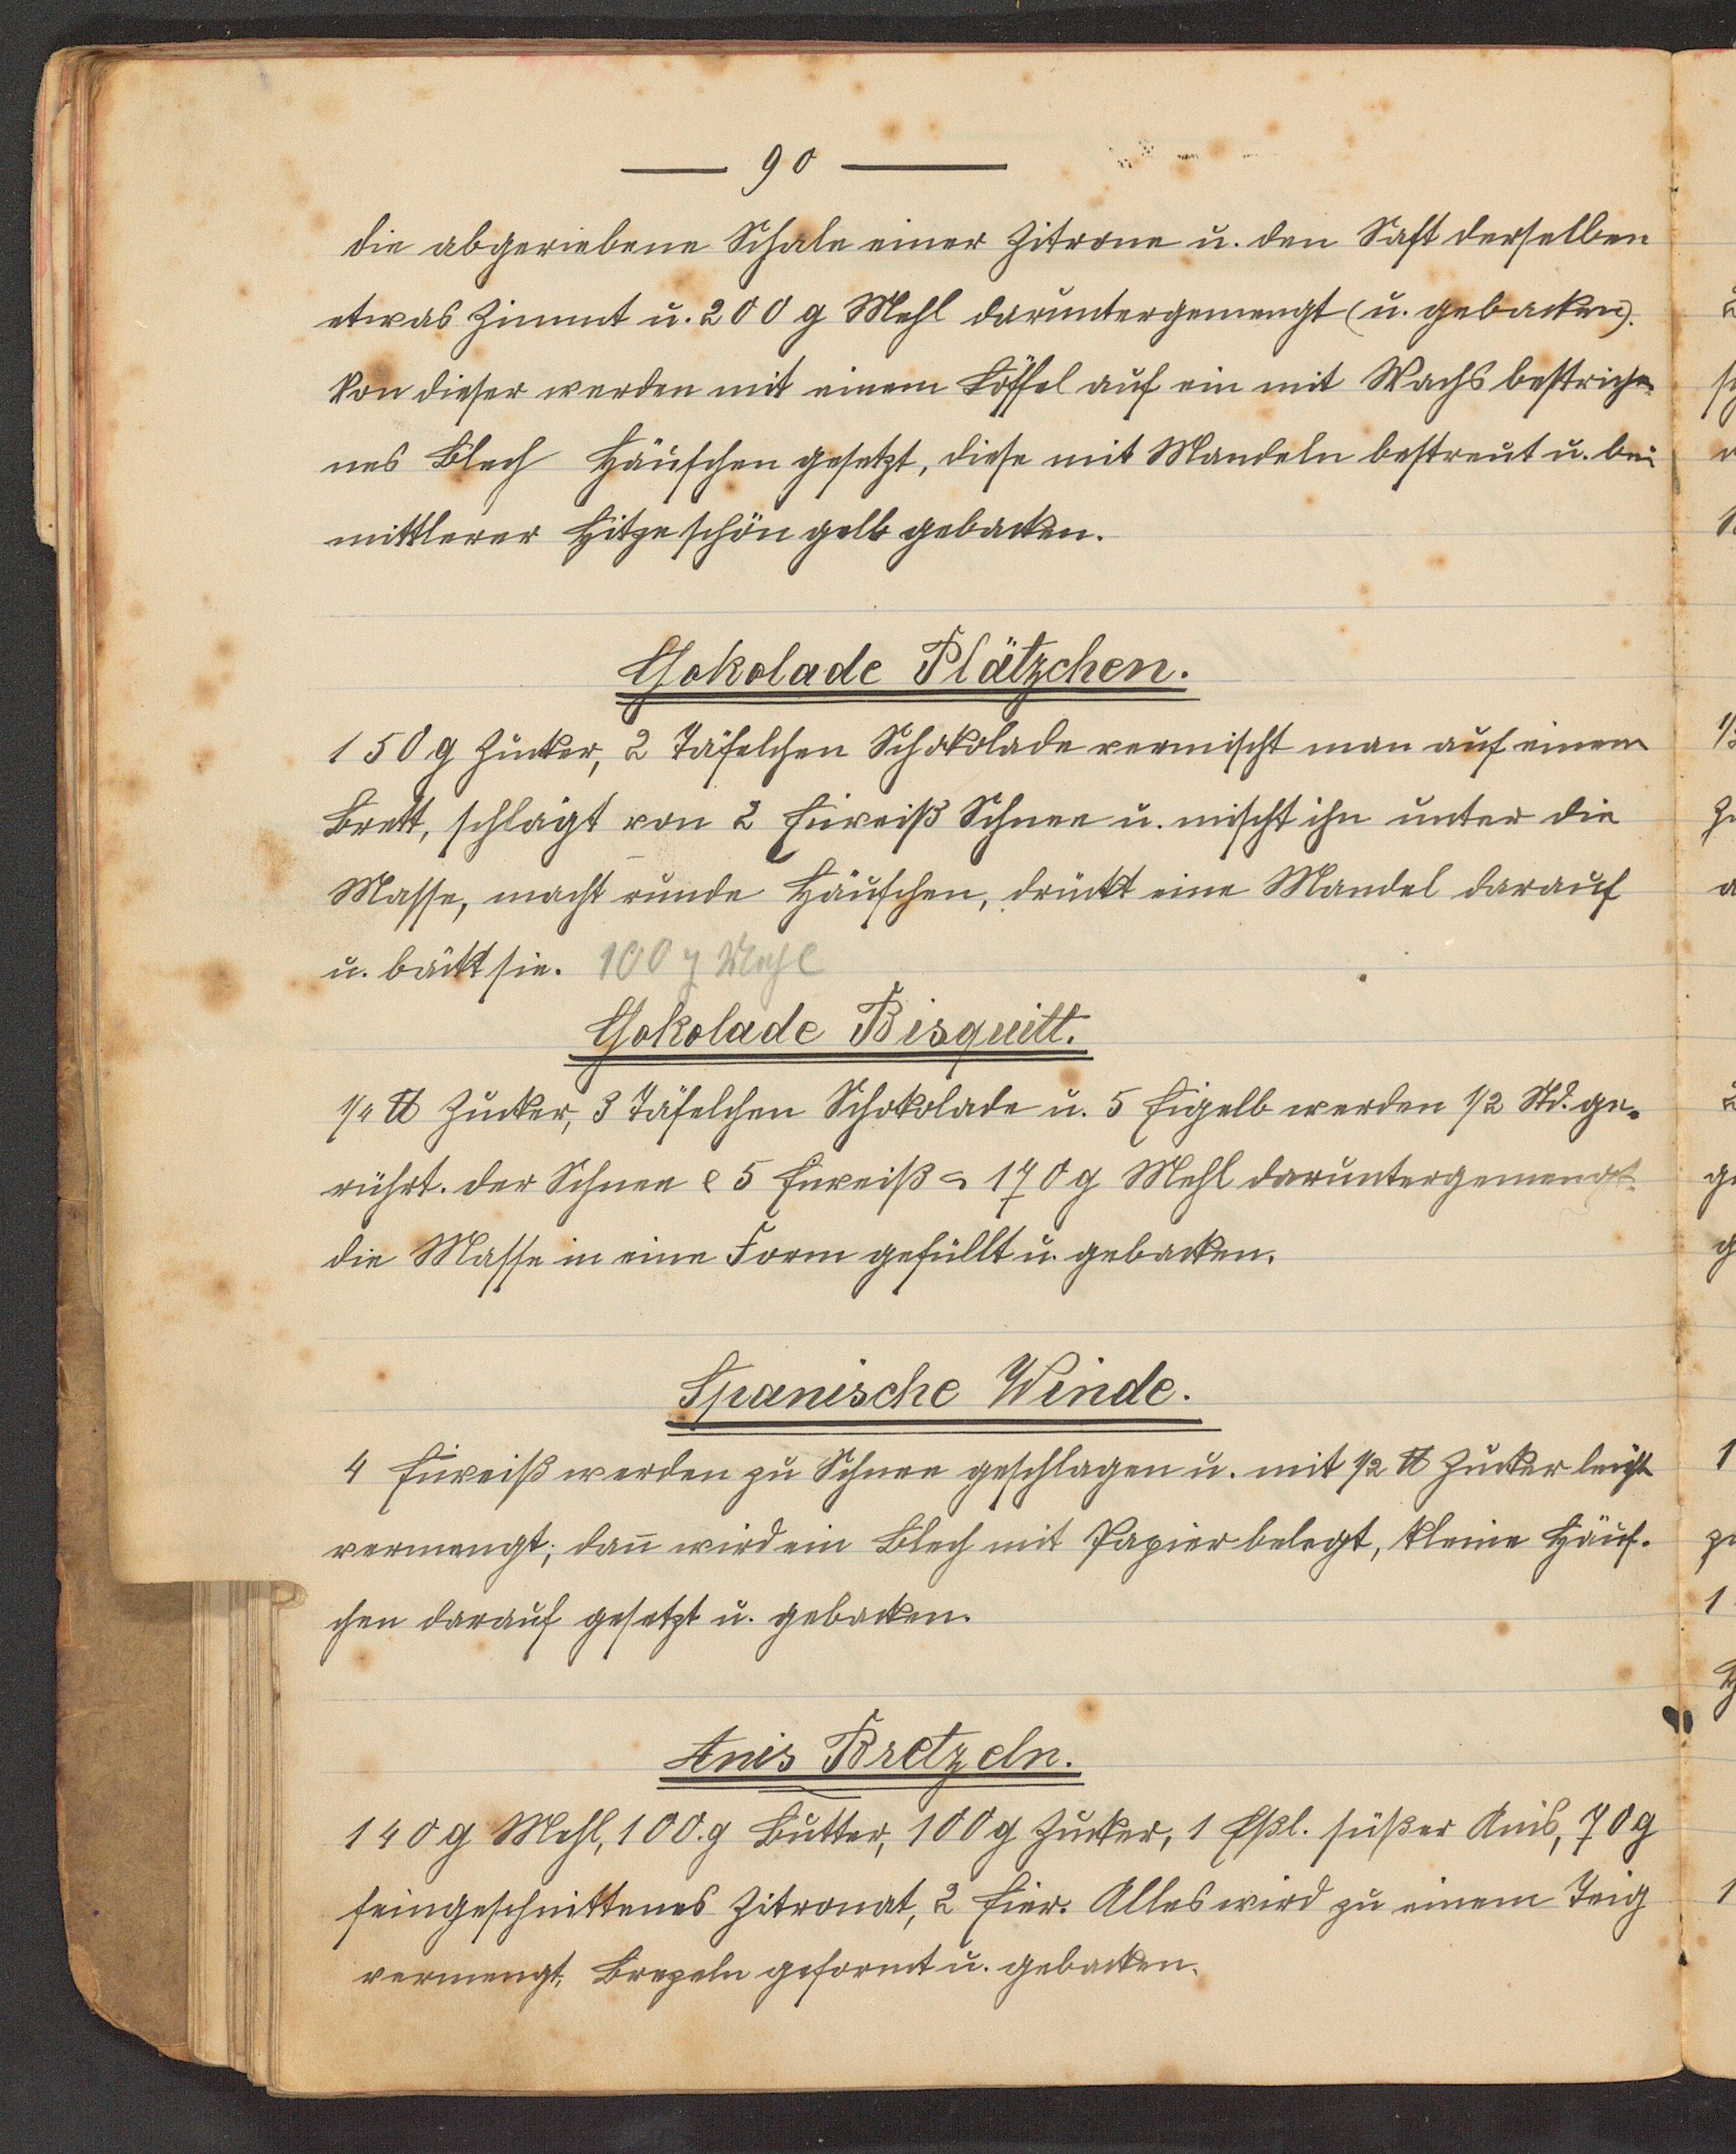 — 90 —
die abgeriebene Schale einer Zitrone u. den Saft derselben
etwas Zimmt u. 200 g Mehl daruntergemengt (u. gebacken).
Von dieser werden mit einem Löffel auf ein mit Wachs bestriche-
nes Blech Häufchen gesetzt, diese mit Mandeln bestreut u. bei
mittlerer Hitze schön gelb gebacken.
Schokolade Plätzchen.
150 g Zucker, 2 Täfelchen Schokolade vermischt man auf einem
Brett, schlägt von 2 Eiweiß Schnee u. mischt ihn unter die
Masse, macht runde Häufchen, drückt eine Mandel darauf
u. bäckt sie. 100 g Mehl
Schokolade Bisquitt.
1/4 ℔ Zucker, 3 Täfelchen Schokolade u. 5 Eigelb werden 1/2 Std. ge-
rührt. der Schnee 5 Eiweiß 170 g Mehl daruntergemengt.
die Masse in eine Form gefüllt u. gebacken.
Spanische Winde.
4 Eiweiß werden zu Schnee geschlagen u. mit 1/2 ℔ Zucker leicht
vermengt; dan̄ wird ein Blech mit Papier belegt, kleine Häuf-
chen darauf gesetzt u. gebacken.
Anis Bretzeln.
140 g Mehl, 100.g Butter, 100 g Zucker, 1 Eßl. süßer Anis, 70 g
feingeschnittenes Zitronat, 2 Eier. Alles wird zu einem Teig
vermengt, Brezeln geformt u. gebacken.